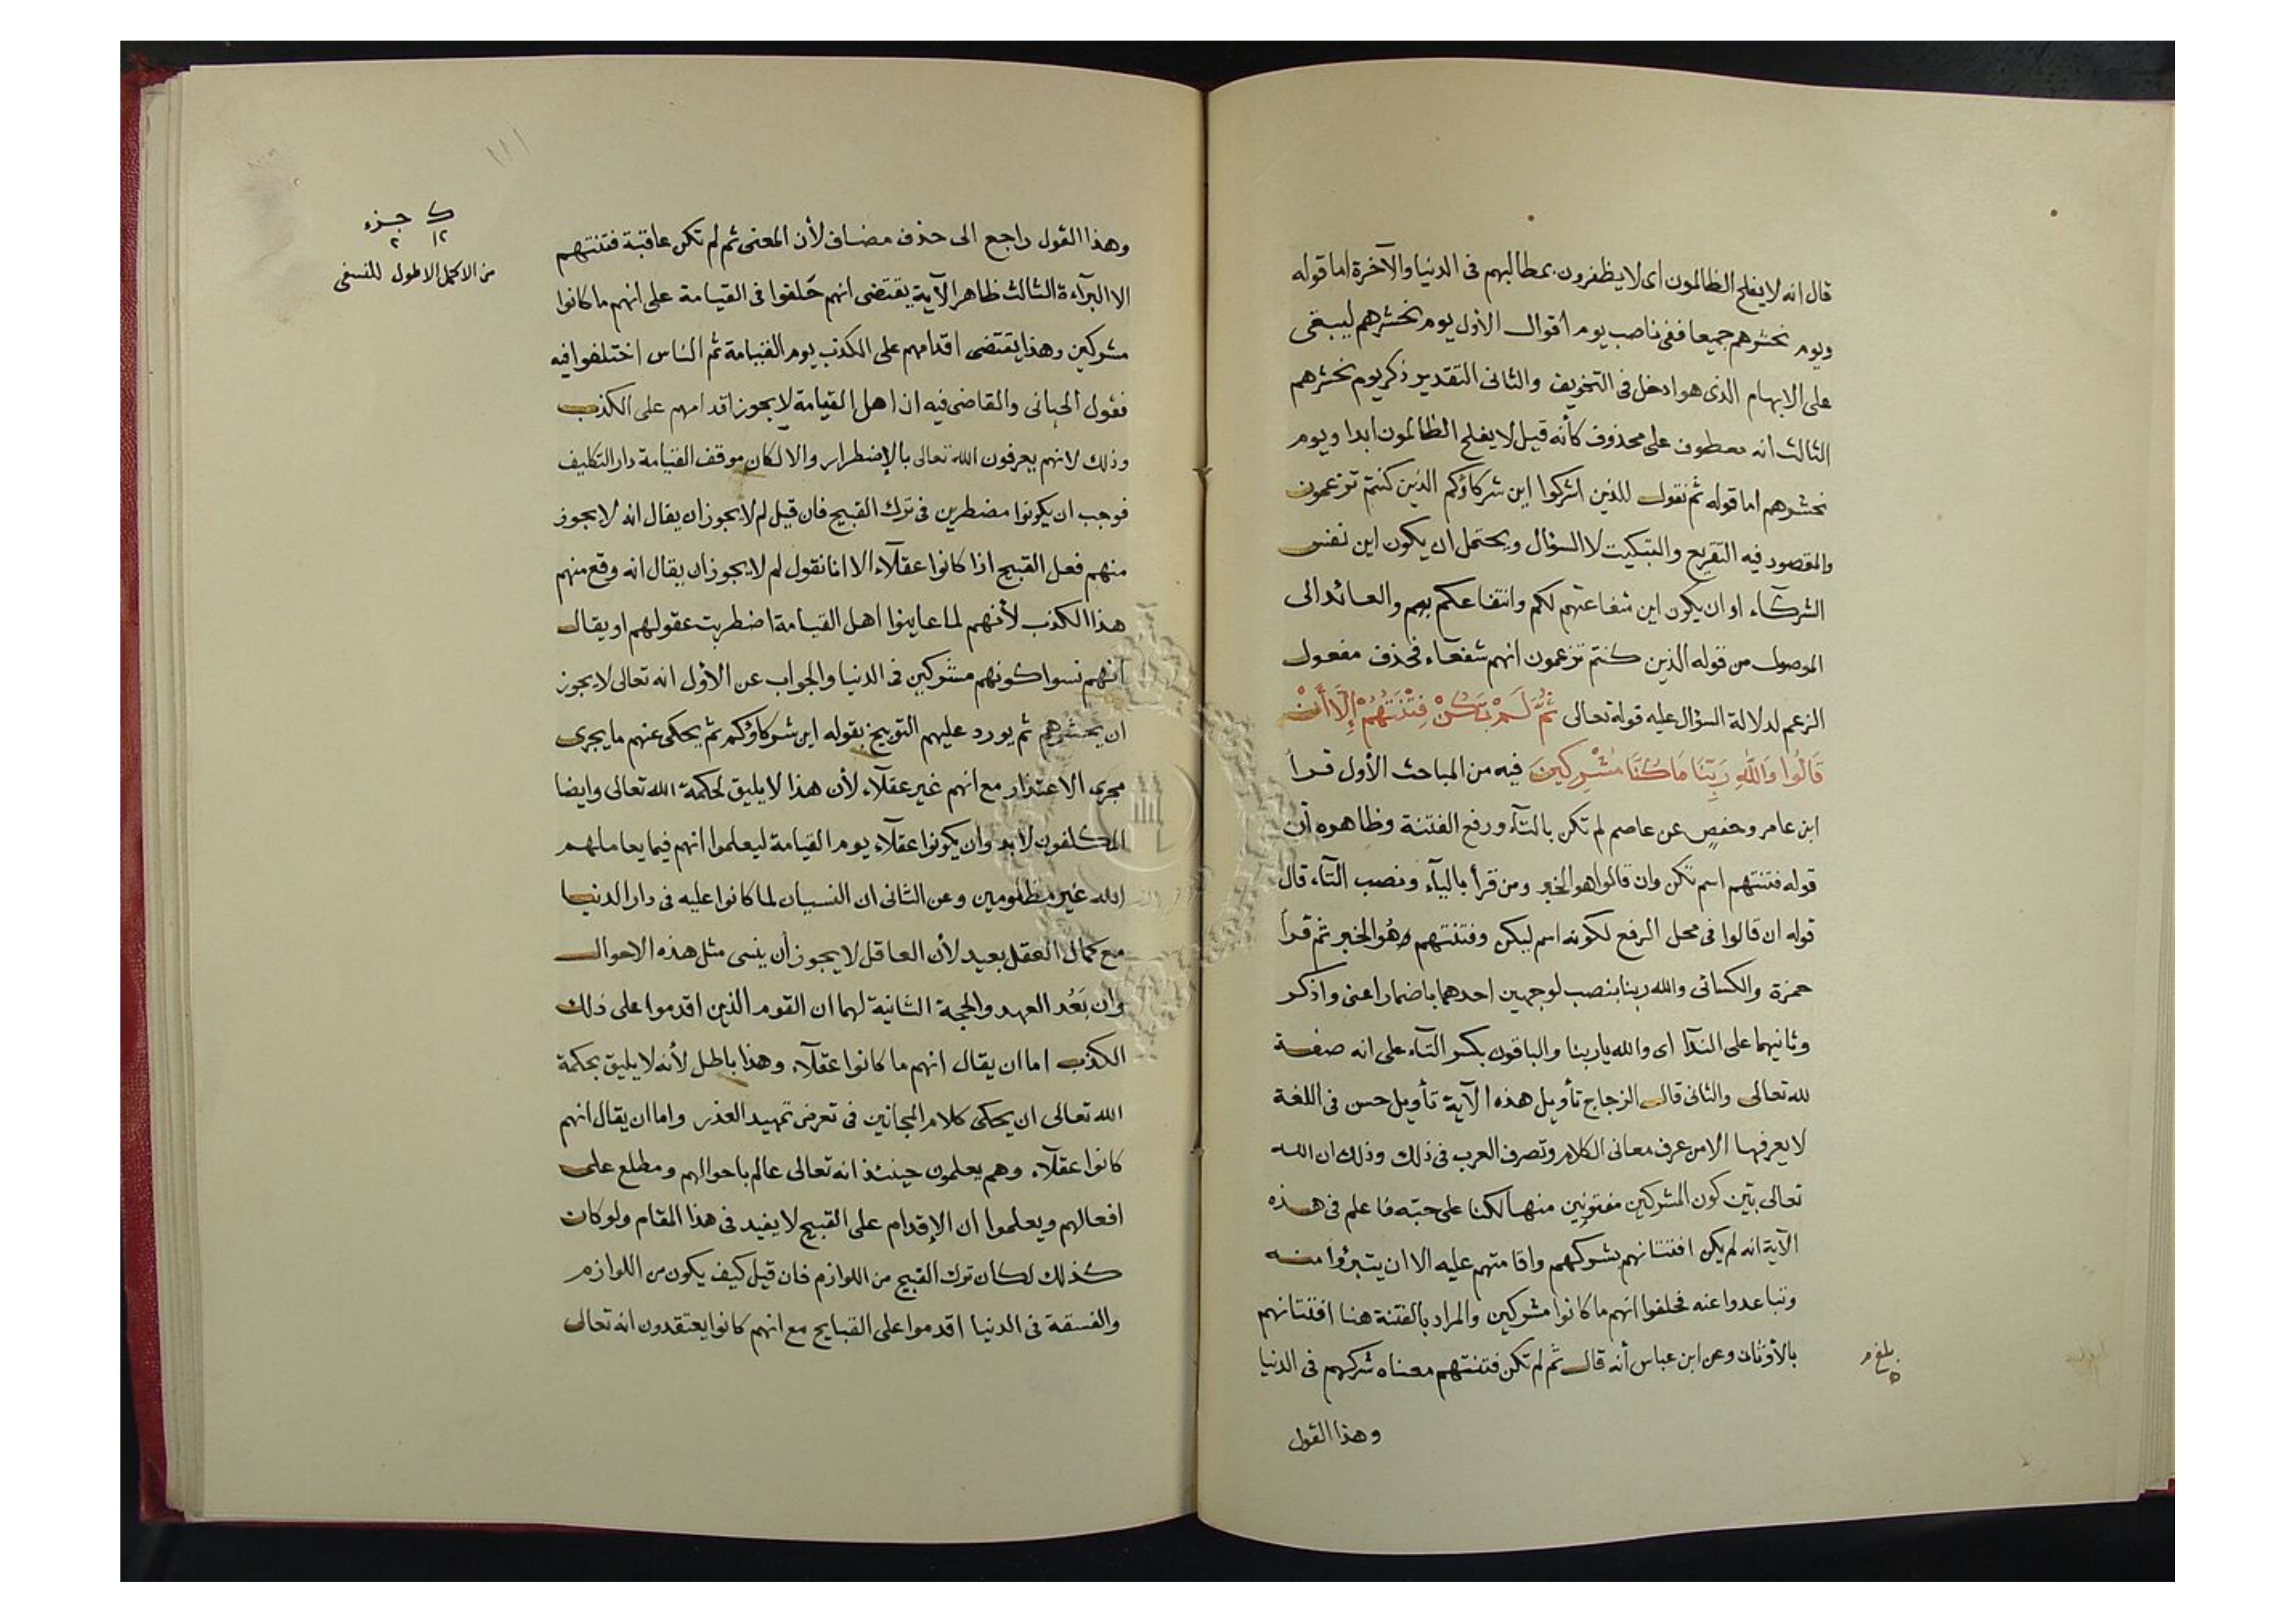 قال انه لا يفلح الظالمون اى لا يظفرون بمطالبهم فى الدنيا والآخرة اما قوله
ويوم نحشرهم جميعا ففى ناصب يوم اقوال الأول يوم نحشرهم ليبقى
على الابهام الذى هو ادخل فى التخويف والثانى التقدير ذكر يوم نحشرهم
الثالث انه معطوف على محذوف كأنه قيل لا يفلح الظالمون ابدا ويوم
نحشرهم اما قوله ثم نقول للذين اشركوا اين شركاؤكم الذين كنتم تزعمون
والمقصود فيه التقريع والتبكيت لا السؤال ويحتمل ان يكون اين نفس
الشركاء او ان يكون اين شفاعتهم لكم وانتفاعكم بهم والعائد الى
الموصول من قوله الذين كنتم تزعمون انهم شفعاء فحذف مفعول
الزعم لدلالة السؤال عليه قوله تعالى ثُمَّ لَمْ تَكُنْ فِتْنَتُهُمْ إِلَّا أَنْ
قَالُوا وَاللَّهِ رَبِّنَا مَا كُنَّا مُشْرِكِينَ فيه من المباحث الأول قرأ
ابن عامر وحفصٍ عن عاصم لم تكن بالتآء ورفع الفتنة وظاهره أن
قوله فتنتهم اسم تكن وان قالوا هو الخبر ومن قرأ باليآء ونصب التآء قال
قوله ان قالوا فى محل الرفع لكونه اسم ليكن وفتنتهم هُو الخبر ثم قرأ
حمزة والكسائى والله ربنا بنصب لوجهين احدهما باضمار اعنى واذكر
وثانيهما على الندآ اى والله يا ربنا والباقون بكسر البآء على انه صفة
لله تعالى والثانى قال الزجاج تأويل هذه الآية تأويل حسن فى اللغة
لا يعرفها الا من عرف معانى الكلام وتصرف العرب فى ذلك وذلك ان الله
تعالى بيّن كون المشركين مفتونين منهالكنا على حبّه فاعلم فى هذه
الآية انه لم يكن افتتانهم بشركهم واقامتهم عليه الا ان يتبرؤا منه
وتباعدوا عنه فحلفوا انهم ما كانوا مشركين والمراد بالفتنة هنا افتتانهم
بالأوثان وعن ابن عباس أنه قال ثم لم تكن فتنتهم معناه شركهم فى الدنيا
وهذا القول
ك جزء
١٢ ٢
من الاكمل الاطول للنسفى
وهذا القول راجع الى حذف مضاف لأن المعنى ثم لم تكن عاقبة فتنتهم
الا البرآءة الثالث ظاهر الآية يقتضى انهم حَلفوا فى القيامة على انهم ما كانوا
مشركين وهذا يقتضى اقدامهم على الكذب يوم القيامة ثم الناس اختلفوا فيه
فقول الجبانى والقاضى فيه ان اهل القيامة لا يجوز اقدامهم على الكذب
وذلك لانهم يعرفون الله تعالى بالإضطرار والا لكان موقف القيامة دار التكليف
فوجب ان يكونوا مضطرين فى ترك القبيح فان قيل لم لا يجوز ان يقال انه لا يجوز
منهم فعل القبيح اذا كانوا عقلآء الا انا نقول لم لا يجوز ان يقال انه وقع منهم
هذا الكذب لأنهم لما عاينوا اهل القيامة اضطربت عقولهم او يقال
انهم نسوا كونهم مشركين فى الدنيا والجواب عن الأول انه تعالى لا يجوز
ان يحشرهم ثم يورد عليهم التوبيخ بقوله اين شركاؤكم ثم يحكى عنهم ما يجرى
مجرى الاعتذار مع انهم غير عقلآء لأن هذا لا يليق لحكمة الله تعالى وايضا
المكلفون لابد وان يكونوا عقلآء يوم القيامة ليعلموا انهم فيما يعاملهم
الله غير مظلومين وعن الثانى ان النسيان لما كانوا عليه فى دار الدنيا
مع كمال العقل بعيد لأن العاقل لا يجوز أن ينسى مثل هذه الاحوال
وان بَعُد العهد والحجة الثانية لهما ان القوم الذين اقدموا على ذلك
الكذب اما ان يقال انهم ما كانوا عقلآء وهذا باطل لأنه لا يليق بحكمة
الله تعالى ان يحكى كلام المجانين فى تعرض تمهيد العذر واما ان يقال انهم
كانوا عقلآء وهم يعلمون حينئذ انه تعالى عالم باحوالهم ومطلع على
افعالهم ويعلموا ان الإقدام على القبيح لا يفيد فى هذا المقام ولو كان
كذلك لكان ترك القبيح من اللوازم فان قيل كيف يكون من اللوازم
والفسقة فى الدنيا اقدموا على القبايح مع انهم كانوا يعتقدون انه تعالى